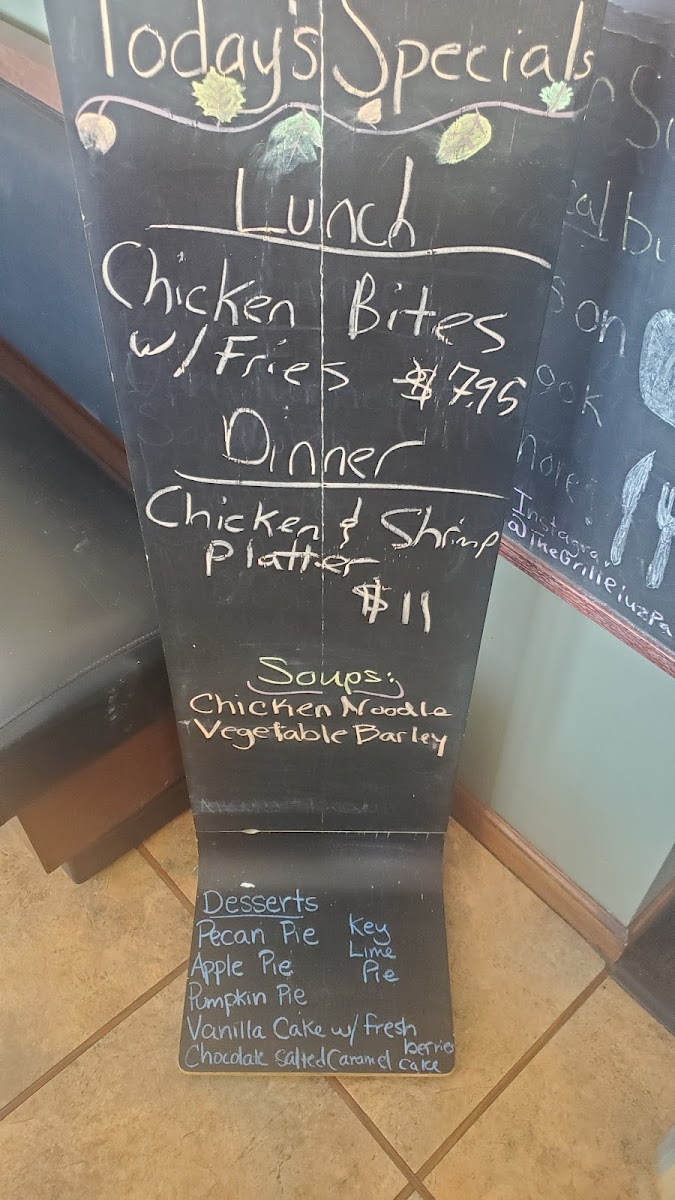 Today's Specials
Lunch
Chicken Bites
w/ Fries $7.95
Dinner
Chicken & Shrimp
Platter
$11
Soups:
Chicken Noodle
Vegetable Barley
Desserts
Pecan Pie
Apple Pie
Pumpkin Pie
Key
Lime
Pie
Vanilla Cake w/ Fresh
berries
Chocolate Salted Caramel Cake
on